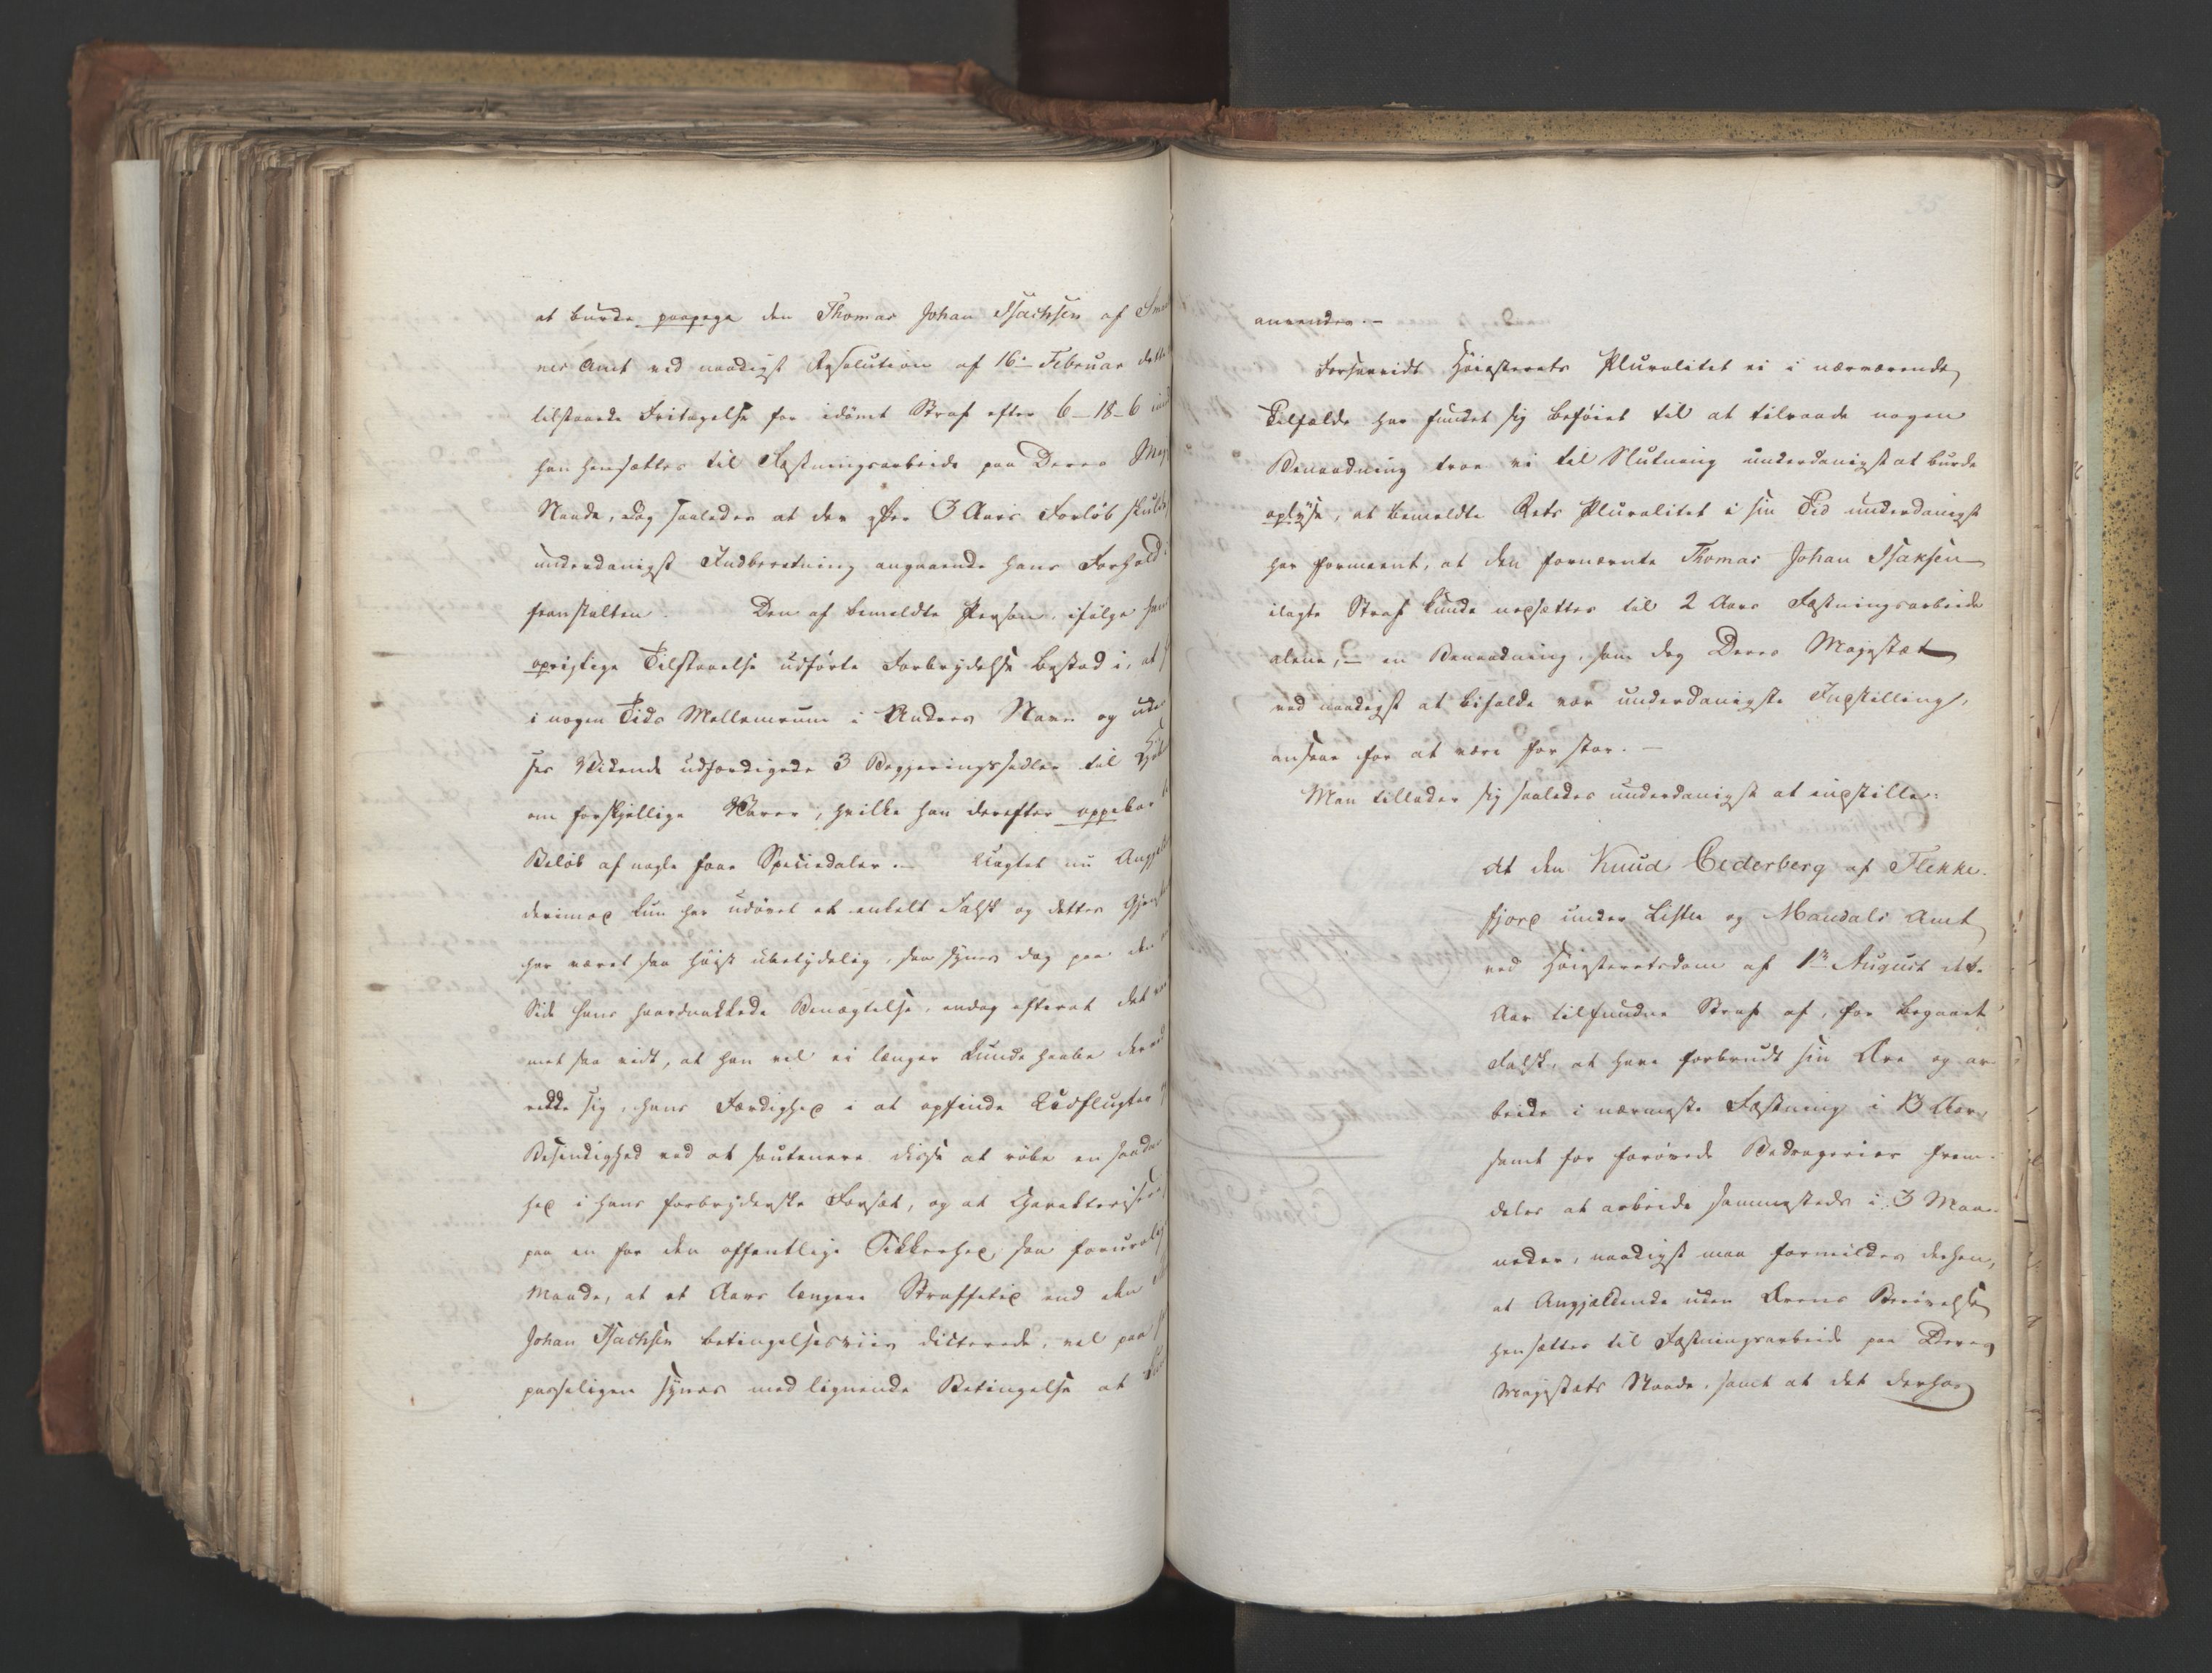 at burde paapege den Thomas Johan Isachsen af Sma
nes Amt ved naadigst Resolution af 16de Februar dette
tilstaaede Fritagelse for idømt Straf efter 6-18-6 imod
han hensættes til Fæstningsarbeide paa Deres Maj
Naade, dog saaledes at der efter 3 Aars Forløb skulde
underdanigst Indberetning angaaende hans Forhold i
Den af bemeldte Person, ifølge hans
oprigtige Tilstaaelse udførte Forbrydelse bestod i, at
i nogen Tids Mellemrum i Andres Navn og uden
Vidende udfærdigede 3 Begjeringssedler til
om forskjellige Varer, hvilke han derefter oppebar
Beløb af nogle faae Speciedaler. — Uagtet nu Angjel
derimod kun har udøvet et enkelt Falsk og dettes Gjenst
har været saa høist ubetydelig, saa synes dog paa den
Side hans haardnakkede Benægtelse, endog efterat det var
met saa vidt, at han vel ei længer kunde haabe derved
redde sig, hans Færdighed i at opfinde Udflugter
Besindighed ved at soutenere disse at røbe en saadan
hed i hans forbryderske Forsæt, og at charakterisere
paa en for den offentlige Sikkerhed saa foruroligende
Maade, at et Aars længere Straffetid end den
Johan Isachsen betingelsesviis dicterede, vel paa
passeligen synes med lignende Betingelse at
35
anvendes. —
Forsaavidt Høiesterets Pluralitet ei i nærværende
Tilfælde har fundet sig beføiet til at tilraade nogen
Benaadning troe vi til Slutning underdanigst at burde
oplyse, at bemeldte Rets Pluralitet i sin Tid underdanigst
har formeent, at den fornævnte Thomas Johan Isaksen
ilagte Straf kunde nedsættes til 2 Aars Fæstningsarbeide
alene, — en Benaadning, som dog Deres Majestæt
ved naadigst at bifalde vor underdanigste Indstilling,
ansaae for at være for stor. —
Man tillader sig saaledes underdanigst at indstille:
At den Knud Cederberg af Flekke-
fjord under Lister og Mandals Amt
ved Høiesteretsdom af 1ste August d. A.
Aar tilfundne Straf af, for begaaet
Falsk, at have forbrudt sin Ære og ar-
beide i nærmeste Fæstning i 3 Aar,
samt for forøvede Bedragerier frem-
deles at arbeide sammesteds i 3 Maa-
neder, naadigst maa formildes derhen,
at Angjældende uden Ærens Berøvelse
hensættes til Fæstningsarbeide paa Deres
Majestæts Naade, samt at det derhos